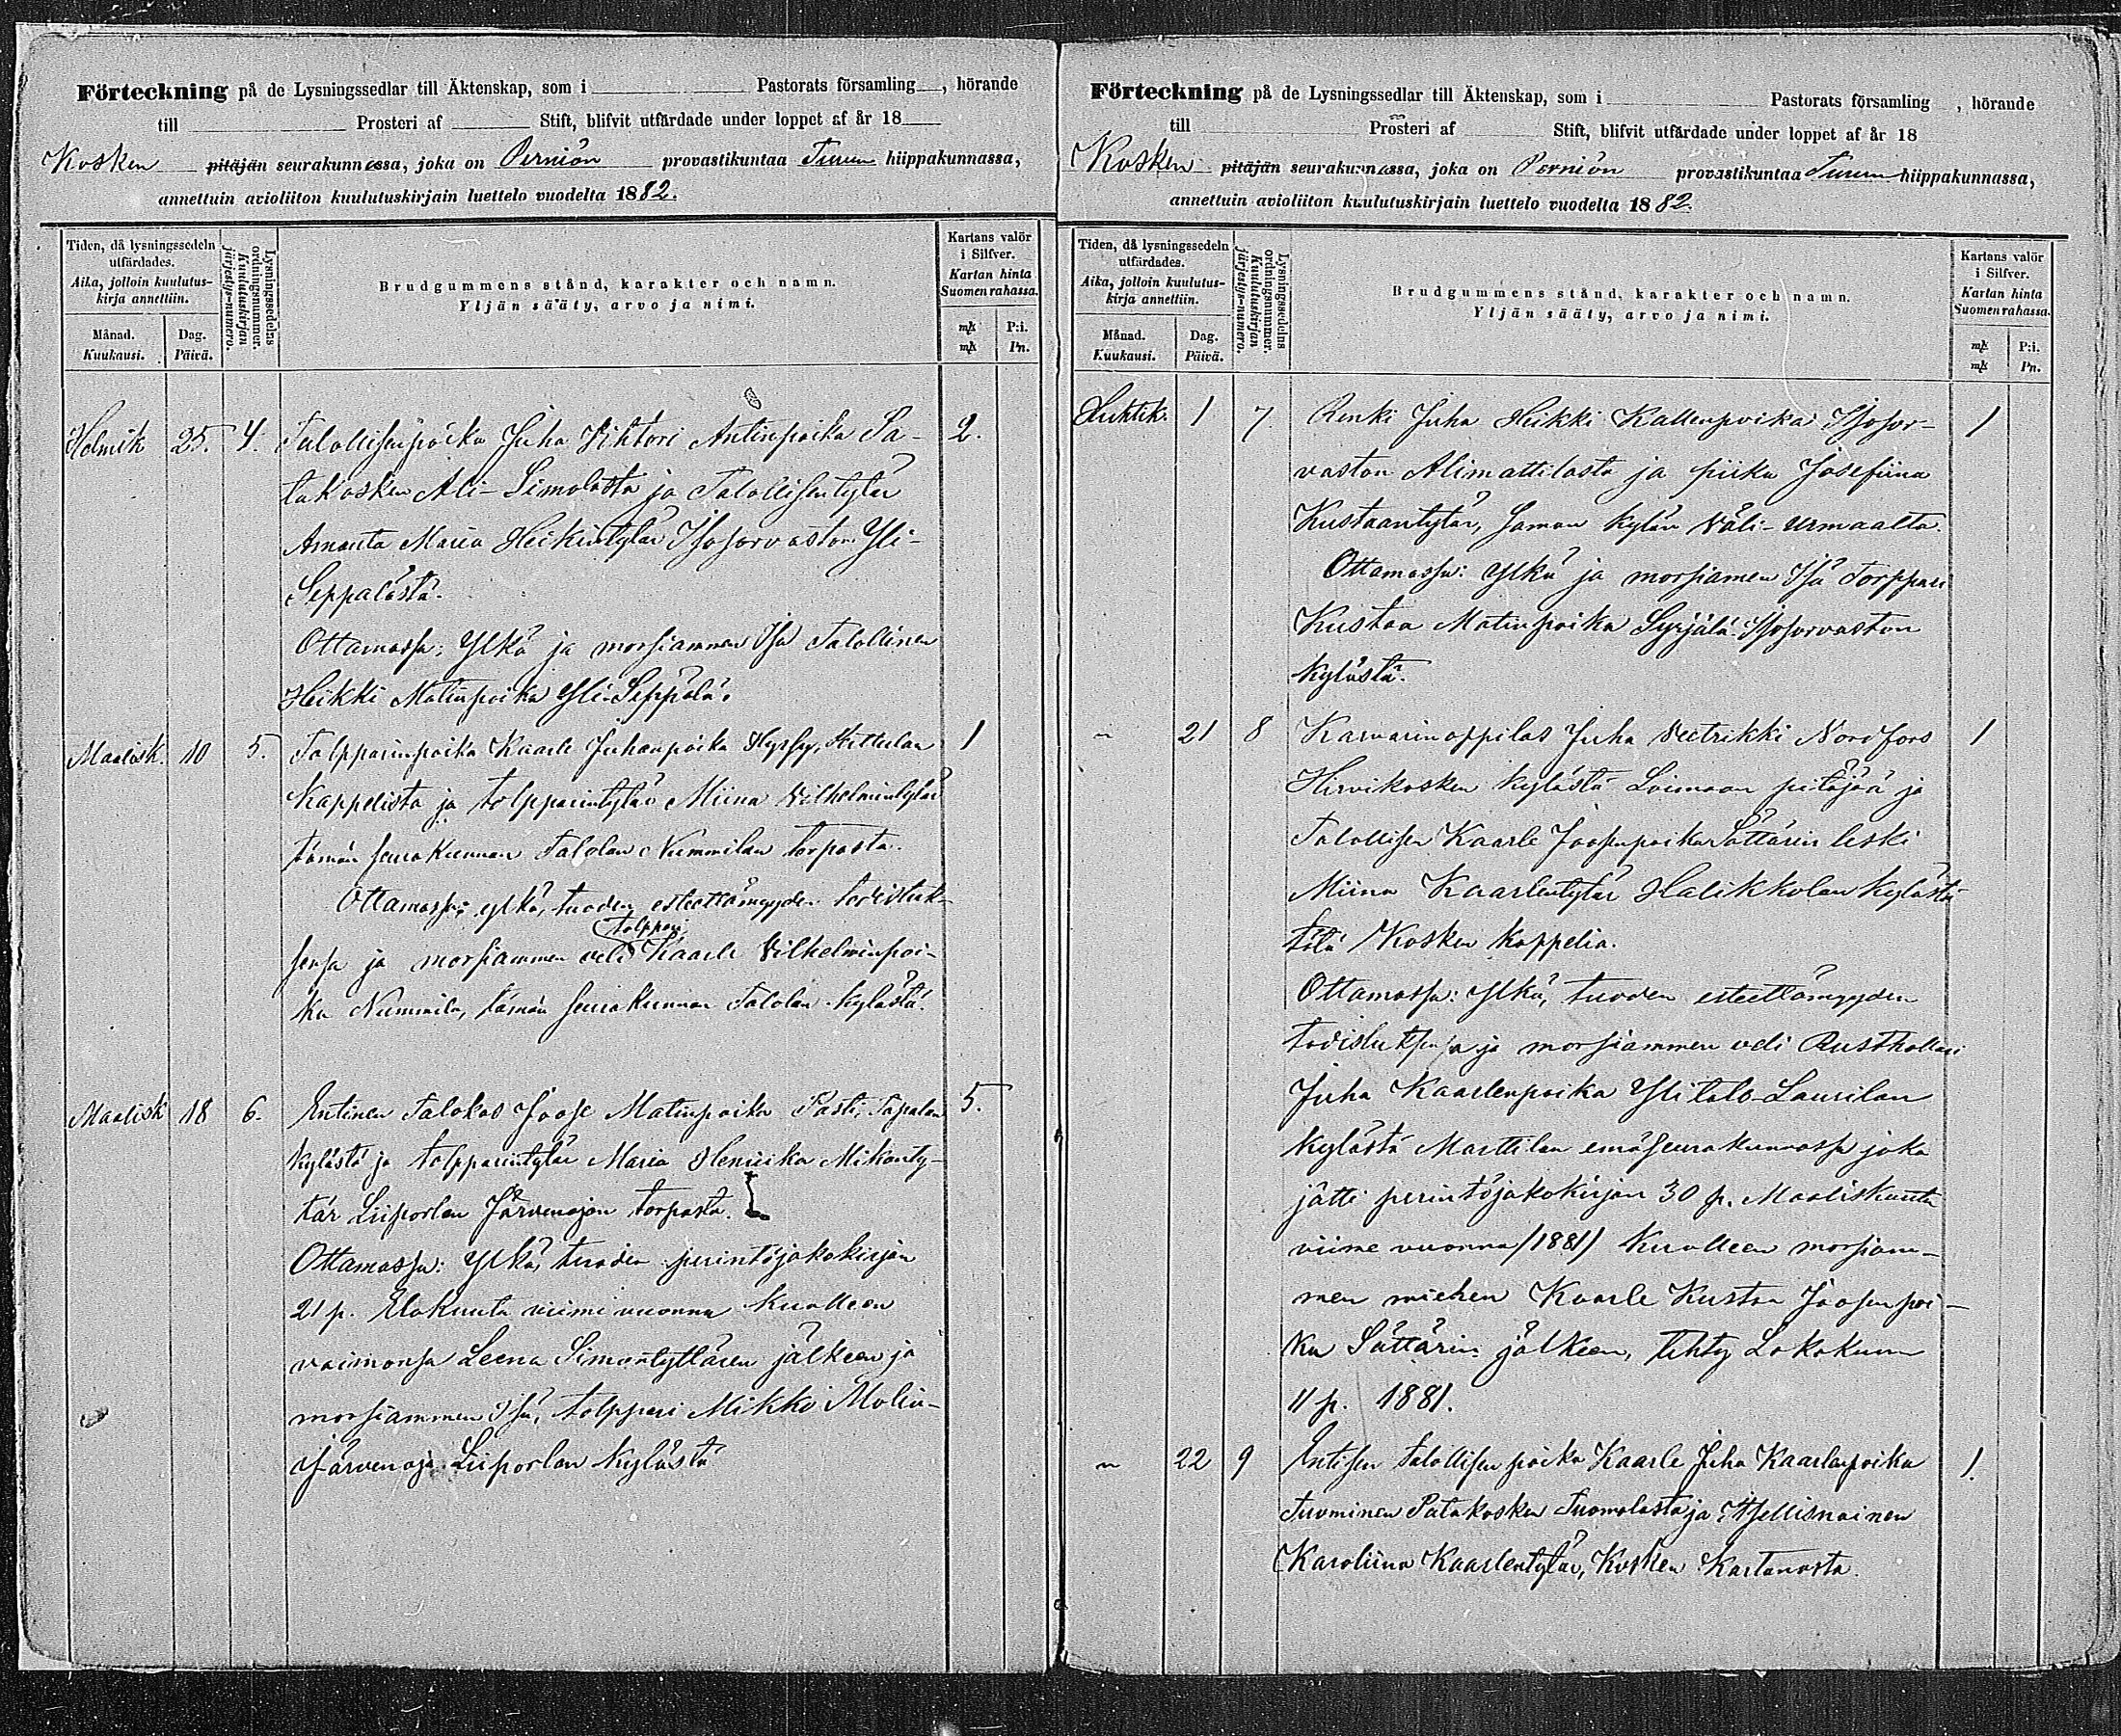 Förteckning på de Lysningssedlar till Äktenskap, som i Pastorats församling, hörande
till Prosteri af Stift, blifvit utfärdade under loppet af år 18
Kosken pitäjän seurakunnassa, joka on Perniön provastikuntaa Turun hiippakunnassa,
annettuin avioliiton kuulutuskirjain luettelo vuodelta 1882.
Tiden, då lysningssedeln utfärdades.
Aika, jolloin kuulutuskirja annettiin.
Månad. Kuukausi.
Dag. Päivä.
Lysningssedelns ordningsnummer.
Kuulutuskirjan järjestys-numero.
Brudgummens stånd, karakter och namn.
Yljän sääty, arvo ja nimi.
Kartans valör i Silfver.
Kartan hinta Suomen rahassa.
mk P:i.
mk Pn.
Helmik 25. 4. Talollisenpoika Juha Vihtori Antinpoika Pa- 2.
takosken Ali-Simolasta ja Talollisentytär
Amanta Maria Heikintytär Isosorvaston Yli-
Seppälästä.
Ottamassa: Ylkä ja morsiammen Isä Talollinen
Heikki Matinpoika Yli-Seppälä.
Maalisk. 10 5. Talpparinpoika Kaarle Juhanpoika 1
Kappelista ja tolpparintytär Miina Vilhelmintytär
tämän seurakunnan Talolan Nummilan torpasta.
Ottamassa: ylkä, tuoden esteettömyyden todistuk-
tolppari
sensa ja morsiammen veli Kaarle Vilhelminpoi-
ka Nummila, tämän seurakunnan Talolan kylästä.
Maalisk 18 6. Entinen Talokas Joose Matinpoika Tapalan 5.
kylästä ja tolpparintytär Maria Henriika Mikonty-
tär Liiporlan Järvenojan torpasta.
Ottamassa: Ylkä, tuoden perintöjakokirjan
21 p. Elokuuta viimi vuonna kuolleen
vaimonsa Leena Simontyttären jälkeen ja
morsiammen Isä, tolppari Mikko
Järvenoja Liiporlan kylästä
Förteckning på de Lysningssedlar till Äktenskap, som i Pastorats församling, hörande
till Prosteri af Stift, blifvit utfärdade under loppet af år 18
Kosken pitäjän seurakunnassa, joka on Perniön provastikuntaa Turun hiippakunnassa,
annettuin avioliiton kuulutuskirjain luettelo vuodelta 1882.
Tiden, då lysningssedeln utfärdades.
Aika, jolloin kuulutuskirja annettiin.
Månad. Kuukausi.
Dag. Päivä.
Lysningssedelns ordningsnummer.
Kuulutuskirjan järjestys-numero.
Brudgummens stånd, karakter och namn.
Yljän sääty, arvo ja nimi.
Kartans valör i Silfver.
Kartan hinta Suomen rahassa.
mk P:i.
mk Pn.
Huhtik. 1 7. Renki Juha Heikki Kallenpoika Isosor- 1
vaston Alimattilasta ja piika Josefiina
Kustaantytär, saman kylän Väli-Urmaalta.
Ottamassa: Ylkä ja morsiamen Isä Torppari
Kustaa Matinpoika Syrjälä Isosorvaston
kylästä.
" 21 8 Karvarinoppilas Juha Vietrikki Nordfors 1
Hirvikosken kylästä Loimaan pitäjää ja
Talollisen Kaarle Joosenpoika Sättärin leski
Miina Kaarlentytär Halikkolan kylästä
tätä Kosken kappelia.
Ottamassa: Ylkä, tuoden esteettömyyden
todistuksensa ja morsiammen veli Rusthollari
Juha Kaarlenpoika Ylitalo Laurilan
kylästä Marttilan emäseurakunnassa joka
jätti perintöjakokirjan 30 p. Maaliskuuta
viime vuonna (1881) kuolleen morsiam-
men miehen Kaarle Kustaa Joosenpoi-
ka Sättärin jälkeen, tehty Lokakuun
11 p. 1881.
" 22 9 Entisen talollisen poika Kaarle Juha Kaarlenpoika 1.
Tuominen Patakosken Tuomolasta ja Itsellisnainen
Karoliina Kaarlentytär, Kosken Kartanosta.